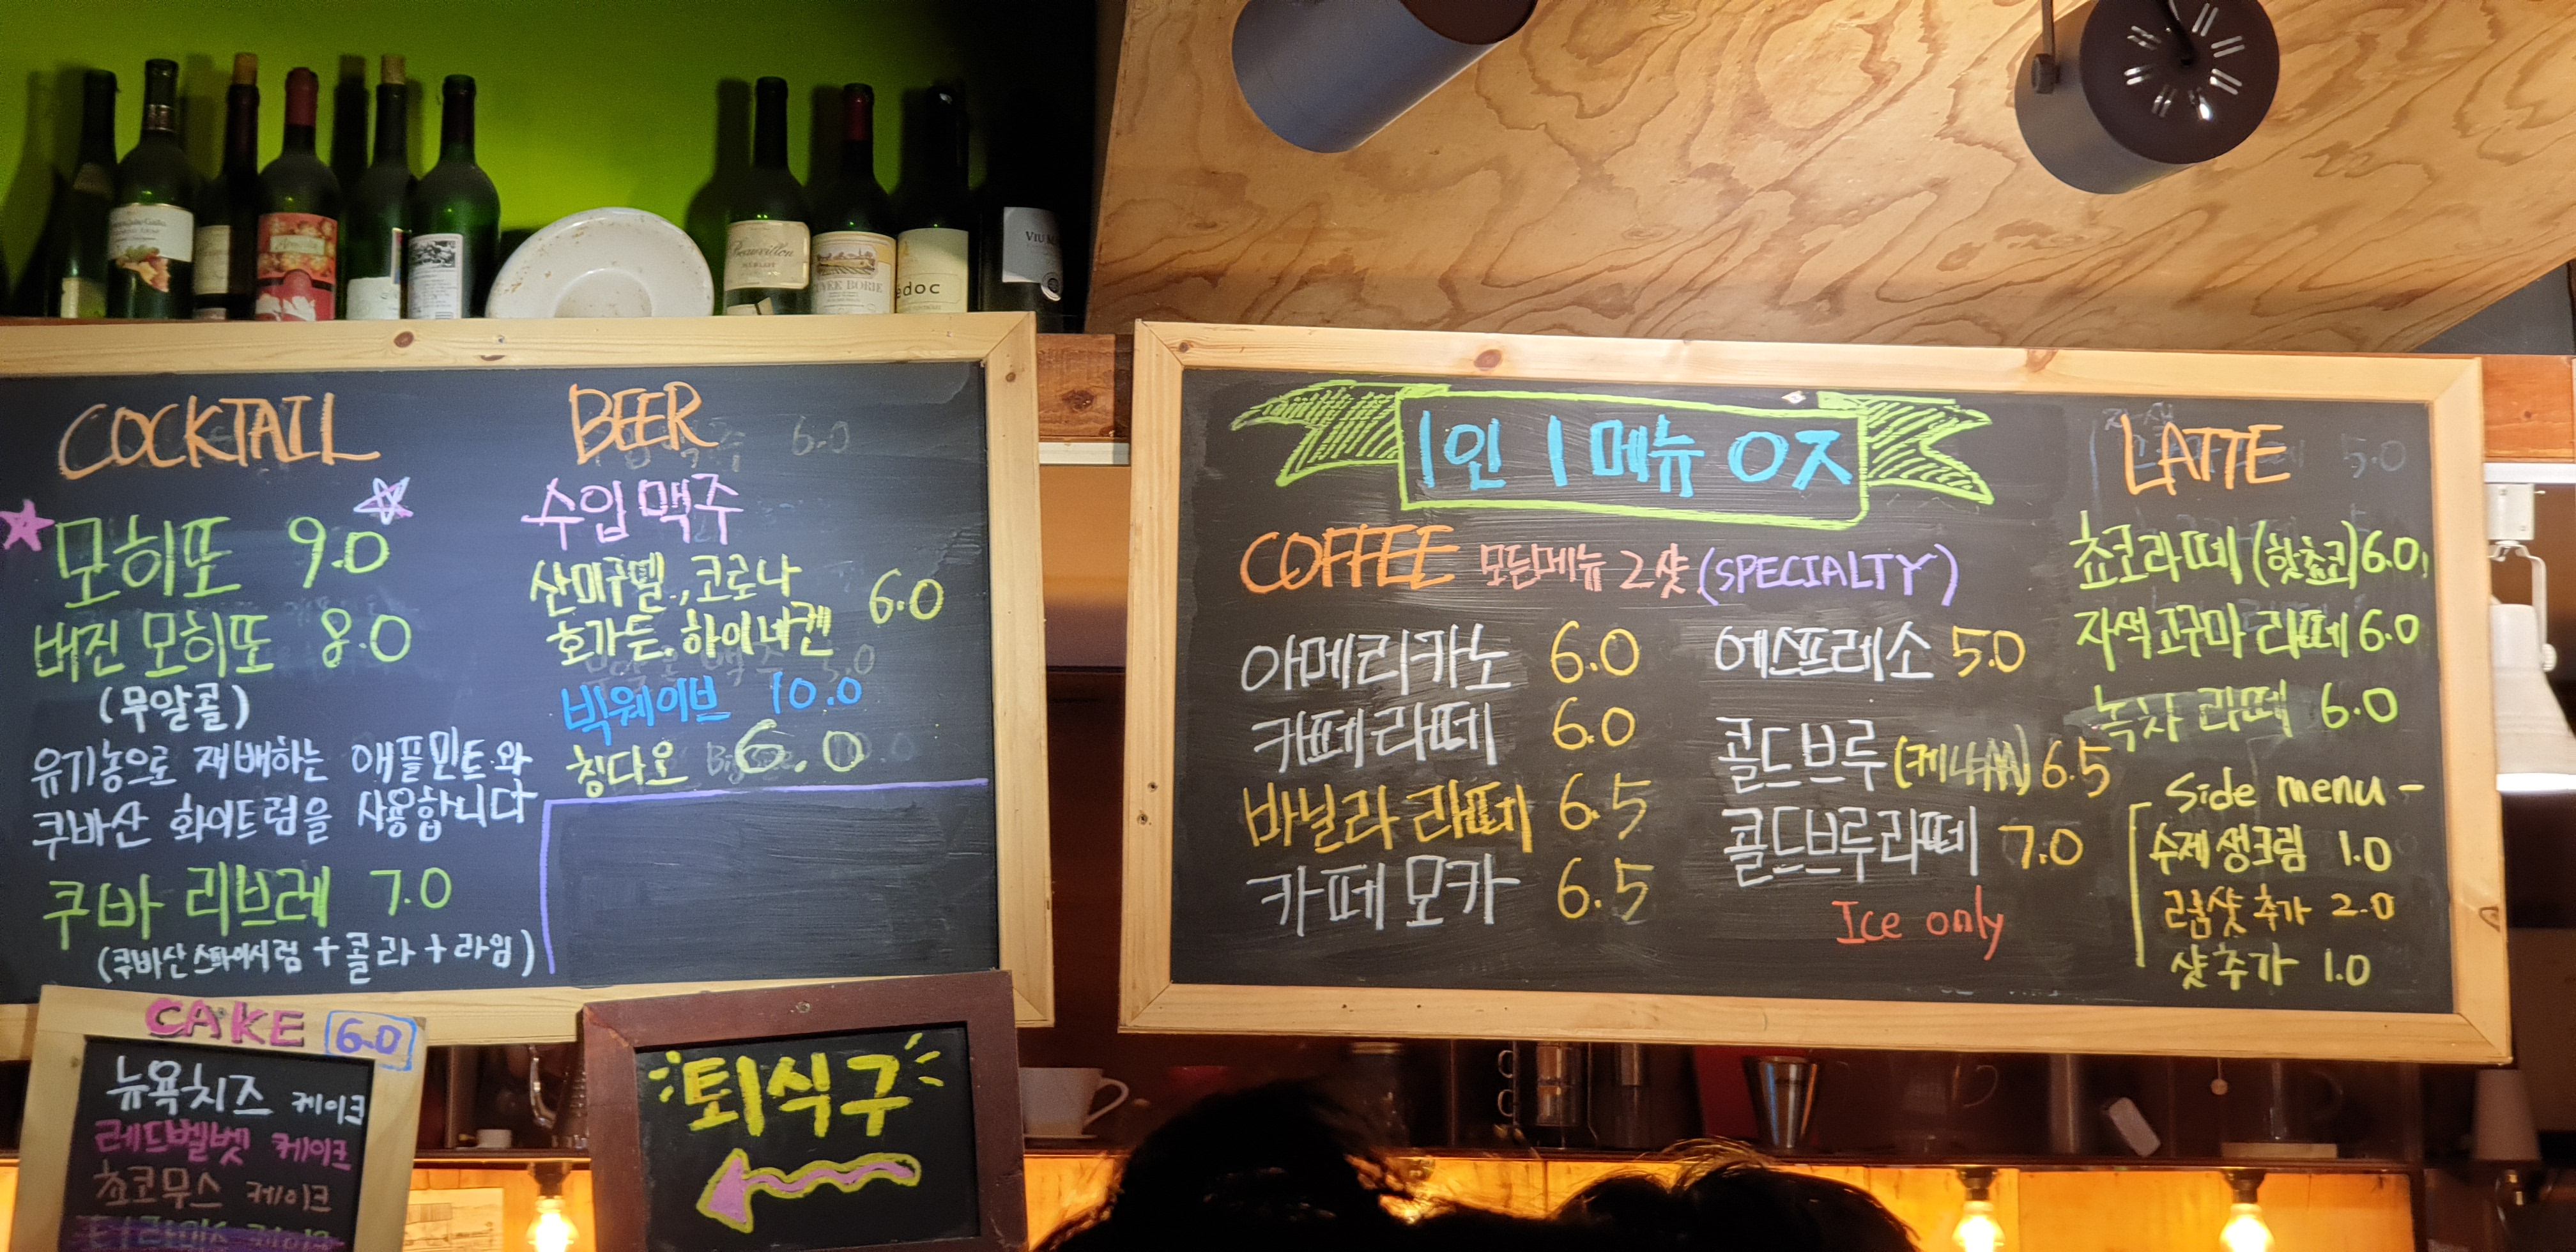 COCKTAIL
모히또 9.0
버진 모히또 8.0
(무알콜)
유기농으로 재배하는 애플민트와
쿠바산 화이트럼을 사용합니다
쿠바 리브레 7.0
(쿠바산 스파이시럼 + 콜라 + 라임)
BEER
수입맥주
산미구엘., 코로나
호가든, 하이네켄 6.0
빅웨이브 10.0
칭다오 6.0
CAKE 6.0
뉴욕치즈 케이크
레드벨벳 케이크
쵸코무스 케이크
퇴식구
1인 1메뉴 OX
COFFEE 모든메뉴 2샷 (SPECIALTY)
아메리카노 6.0
카페라떼 6.0
바닐라 라떼 6.5
카페 모카 6.5
에스프레소 5.0
콜드브루 6.5
콜드브루라떼 7.0
Ice only
LATTE
쵸코라떼 (핫쵸코) 6.0
자색고구마 라떼 6.0
녹차 라떼 6.0
Side menu -
수제 생크림 1.0
럼샷 추가 2.0
샷 추가 1.0
VIU M
CUVEE BORIE
edoc